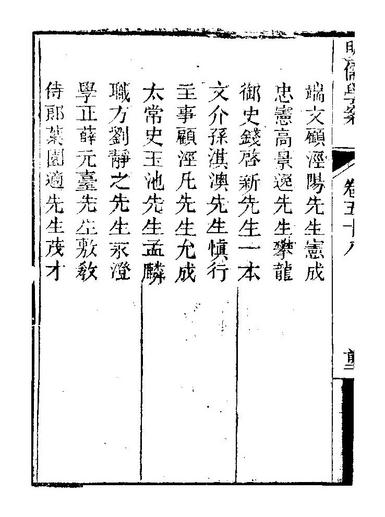 明儒學案
卷五十八
端文顧涇陽先生憲成
忠憲高景逸先生攀龍
御史錢啓新先生一本
文介孫淇澳先生愼行
主事顧涇凡先生允成
太常史玉池先生孟麟
職方劉靜之先生永澄
學正薛元臺先生敷教
侍郎葉園適先生茂才